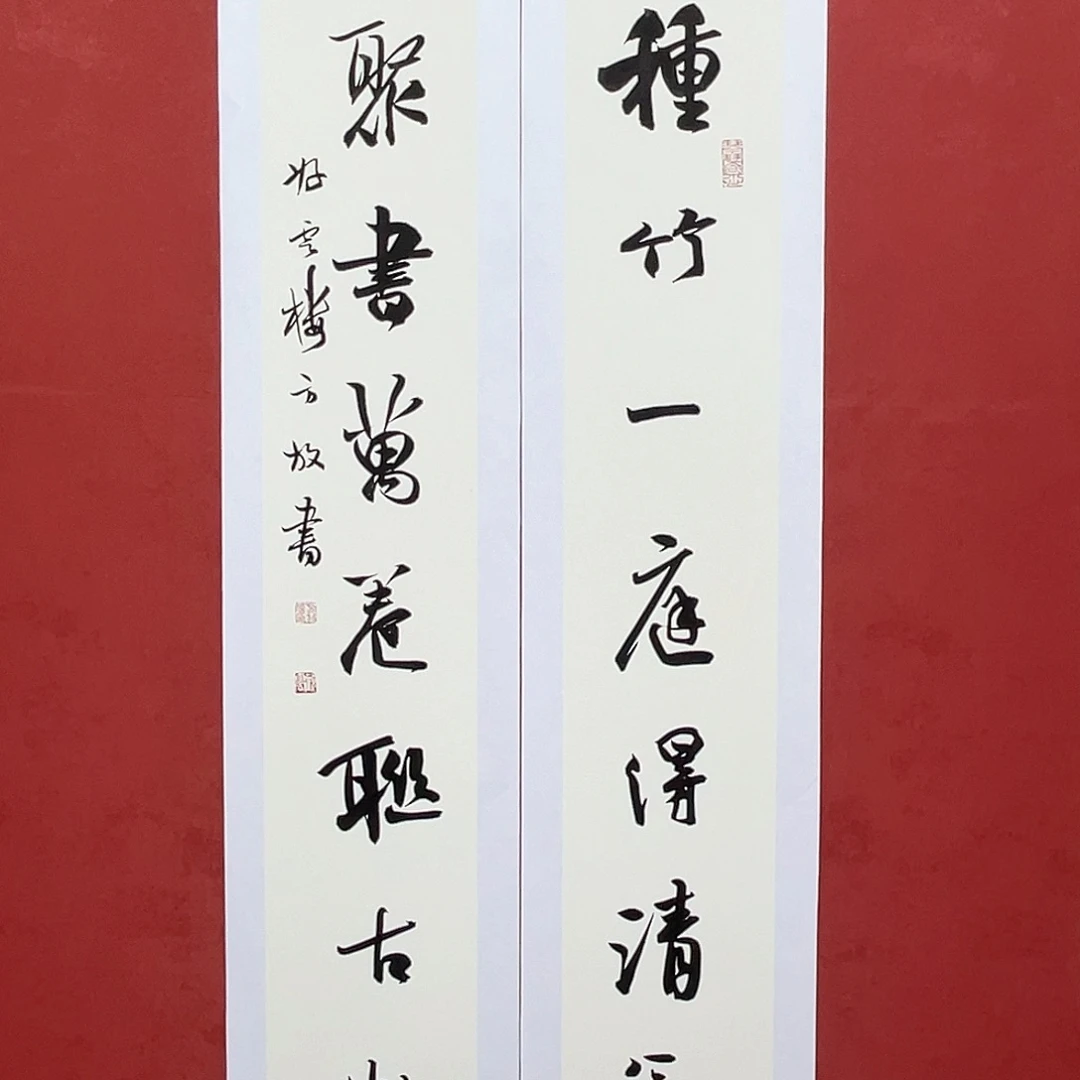 種竹一庭得清
聚書萬卷聯古
好雲樓方放書